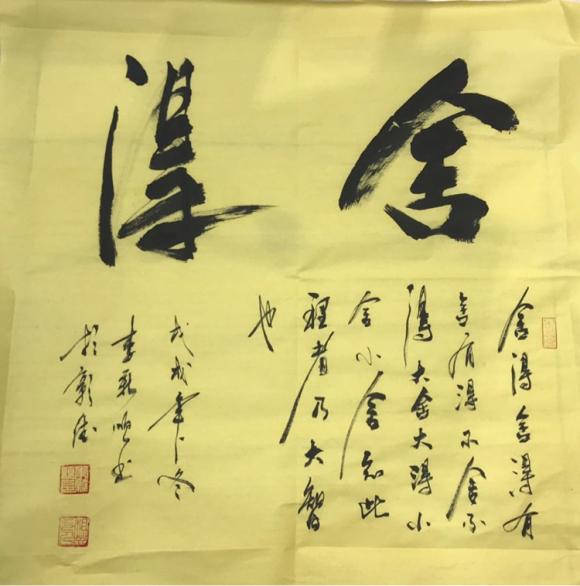 舍得
舍得舍得有
舍有得不舍不
得大舍大得小
舍小舍知此
理者乃大智
也
戊戌年冬
李顺书
於彰德